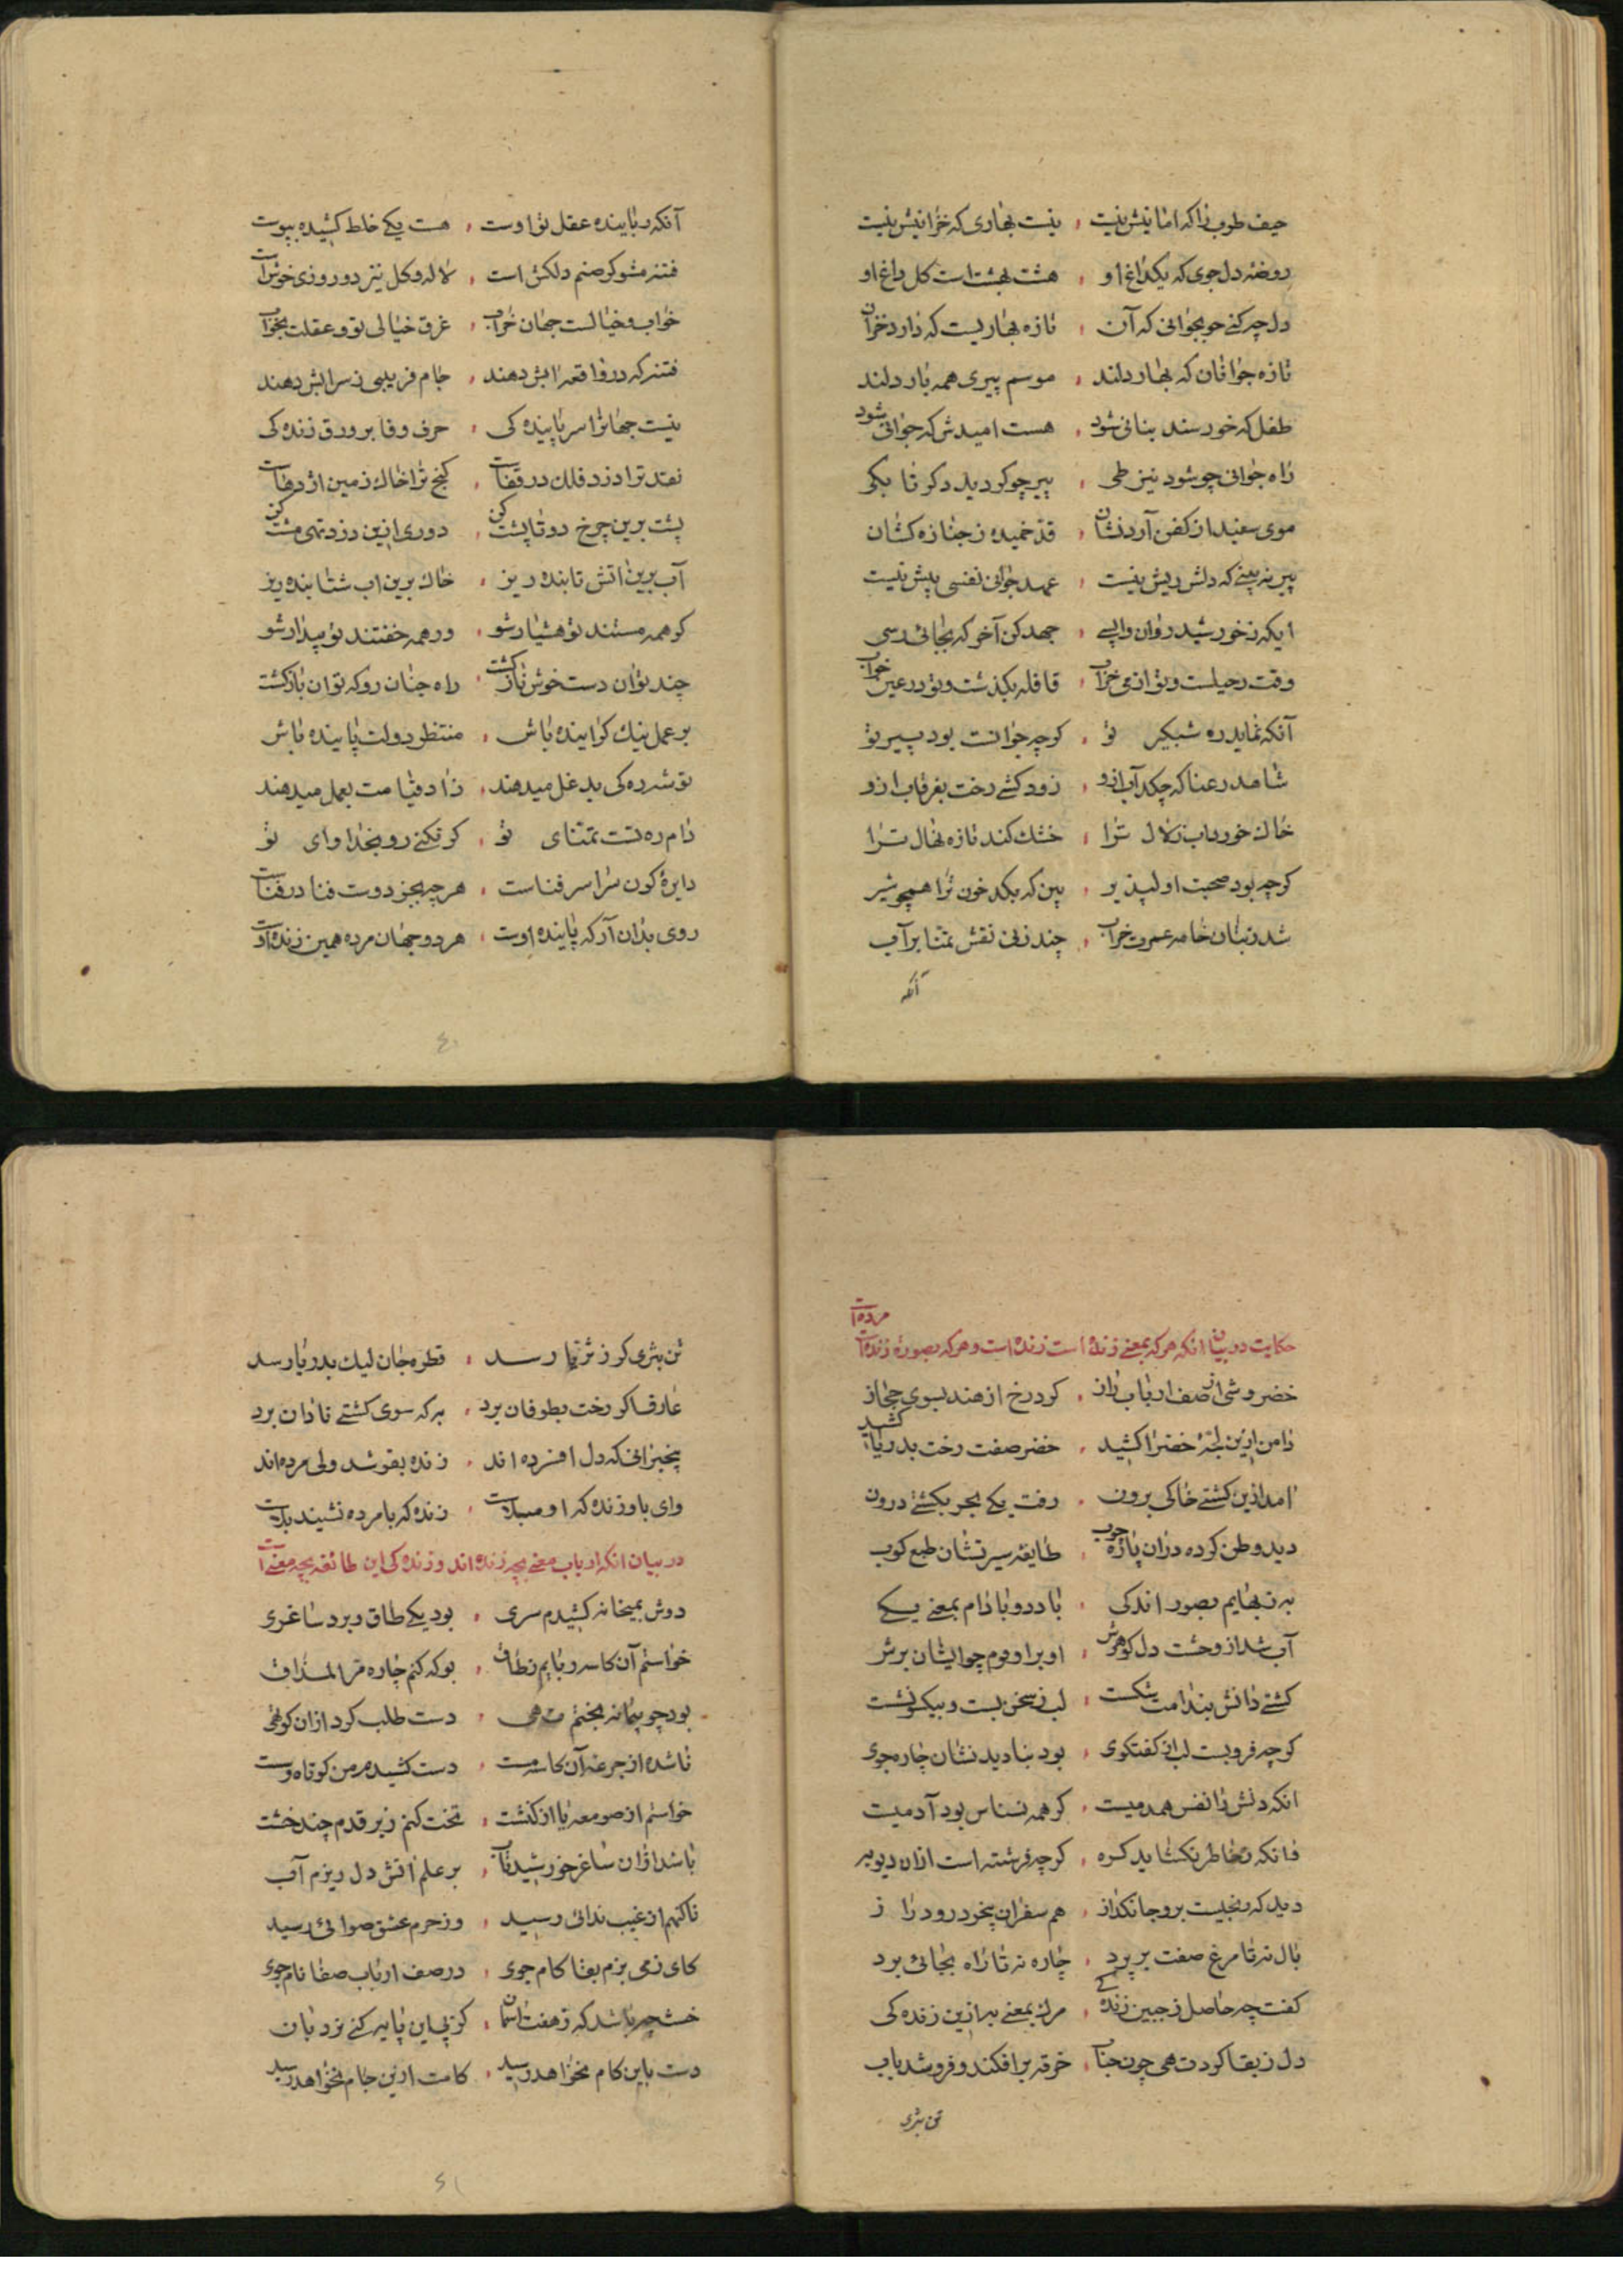 حیف طرب را که امانیش نیست ، نیست بهاری که خزانیش نیست
روضه دل جوی که یکداغ او ، هشت بهشت است کل داغ او
دل چه کنی خو بجوانی که آن ، تازه بهاریست که دارد خزان
تازه جوانان که بهار دلند ، موسم پیری همه بار دلند
طفل که خورسند بنانی شود ، هست امیدش که جوانی شود
راه جوانی چو شود نیز طی ، پیر چو کردید دکر تا بکی
موی سفید از کفن آرد نشان ، قد خمیده ز جنازه کشان
پیر نه بینی که دلش ریش نیست ، عهد جوانی نفسی پیش نیست
ایکه ز خورشید روان واپسی ، جهد کن آخر که بجائی رسی
وقت رحیلست و تو از می خراب ، قافله بکذشت و تو در عین خواب
آنکه نماید ره شبکیر تو ، کرچه جوانست بود پیر تو
شاهد رعنا که چکد آب ازو ، زود کشی رخت بغرقاب ازو
خاك خورد آب زلال ترا ، خشك کند تازه نهال ترا
کرچه بود صحبت او لپذیر ، بین که بکد خون ترا همچو شیر
شد ز بتان خامه عمرت خراب ، چند زنی نقش تمنا بر آب
آنکه
آنکه رباینده عقل تو اوست ، هست یکی خلط کشیده بپوست
فتنه مشو کر صنم دلکش است ، لاله و کل نیز دو روزی خوش است
خواب و خیالست جهان خراب ، غرق خیالی تو و عقلت بخواب
فتنه که در واقعه آبش دهند ، جام فریبی ز سرابش دهند
نیست جهانرا سر پایندکی ، حرف وفا بر ورق زندکی
نقد ترا دزد فلك در قفاست ، کنج ترا خاك زمین اژدهاست
پشت برین چرخ دوتا پشت کن ، دوری ازین دزد تهی مشت کن
آب برین آتش تابنده ریز ، خاك برین آب شتابنده ریز
کر همه مستند تو هشیار شو ، ور همه خفتند تو بیدار شو
چند توان دست خوش ناز کشت ، راه چنان رو که توان باز کشت
بر عمل نیك کراینده باش ، منتظر دولت پاینده باش
توشه ره کی بدغل میدهند ، زاد قیامت بعمل میدهند
دام ره تست تمنای تو ، کر نکنی رو بخدا وای تو
دایرۀ کون سراسر فناست ، هر چه بجز دوست فنا در فناست
روی بدان آر که پاینده اوست ، هر دو جهان مرده همین زنده اوست
٤٠
حکایت در بیان انکه هرکه بمعنی زنده است زنده است و هرکه بصورة زنده است مرده است
خضر وشی از صف ارباب راز ، کرد رخ از هند بسوی حجاز
دامن ازین لجۀ خضرا کشید ، خضر صفت رخت بدریا کشید
آمد ازین کشتی خاکی برون ، رفت یکی بحر بکشتی درون
دید وطن کرده دران پاره چوب ، طایفه سیرتشان طبع کوب
به ز بهایم بصور اندکی ، با دد و با دام بمعنی یکی
آب شد از وحشت دل کوهرش ، او بر او بوم چو ایشان برش
کشتی دانش بندامت شکست ، لب ز سخن بست و بیکسو نشست
کرچه فرو بست لب از کفتکوی ، بود بنا دیدنشان چاره جوی
انکه دلش را نفس همدمیست ، کر همه نسناس بود آدمیست
وانکه ز خاطر نکشاید کره ، کرچه فرشته است ازان دیو به
دید که رنجیست برو جانکداز ، هم سفران بیخود و ره دراز
بال نه تا مرغ صفت بر پرد ، چاره نه تا راه بجائی برد
کفت چه حاصل ز چنین زندکی ، مرك بمعنی به ازین زندکی
دل ز بقا کرد تهی چون حباب ، خرقه بر افکند و فرو شد باب
تن بثری
تن بثری کر ز ثریا رسد ، قطره جان لیك بدریا رسد
عارف اکر رخت بطوفان برد ، به که سوی کشتی نادان برد
بیخبرانی که دل افسرده اند ، زنده بقوشد ولی مرده اند
وای باو زنده که او مبتلاست ، زنده که با مرده نشیند بلاست
در بیان انکه ارباب معنی بچه زنده اند و زندکی این طائفه بچه معنی است
دوش بمیخانه کشیدم سری ، بود یکی طاق و برو ساغری
خواستم آن کاسه ربایم ز طاق ، بو که کنم چاره مر المذاق
بود چو پیمانه بختم تهی ، دست طلب کرد ازان کوتهی
تا شده از جرعه آن کاسه مست ، دست کشیدم من کوتاه دست
خواستم از صومعه یا از کنشت ، تخت کنم زیر قدم چند خشت
تا شد ازان ساغر خورشید تاب ، بر علم آتش دل ریزم آب
ناکهم از غیب ندائی رسید ، وز حرم عشق صدائی رسید
کای ز می بزم بقا کام جوی ، در صف ارباب صفا نام جوی
خشت چه باشد که ز هفت آسمان ، کر پی این پایه کنی نردبان
دست باین کام نخواهد رسید ، کامت ازین جام نخواهد رسید
٤١